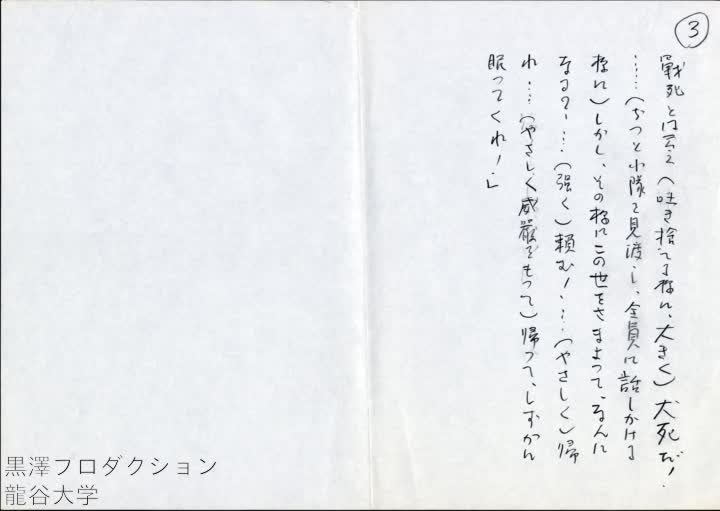 ③
戦死とは云え(吐き捨てる様に、大きく)犬死だ!
……(ずっと小隊を見渡し、全員に話しかける
様に)しかし、その様にこの世をさまよって、なんに
なるの?……(強く)頼む!……(やさしく)帰
れ……(やさしく威厳をもって)帰って、しずかに
眠ってくれ!」
黒澤プロダクション
龍谷大学